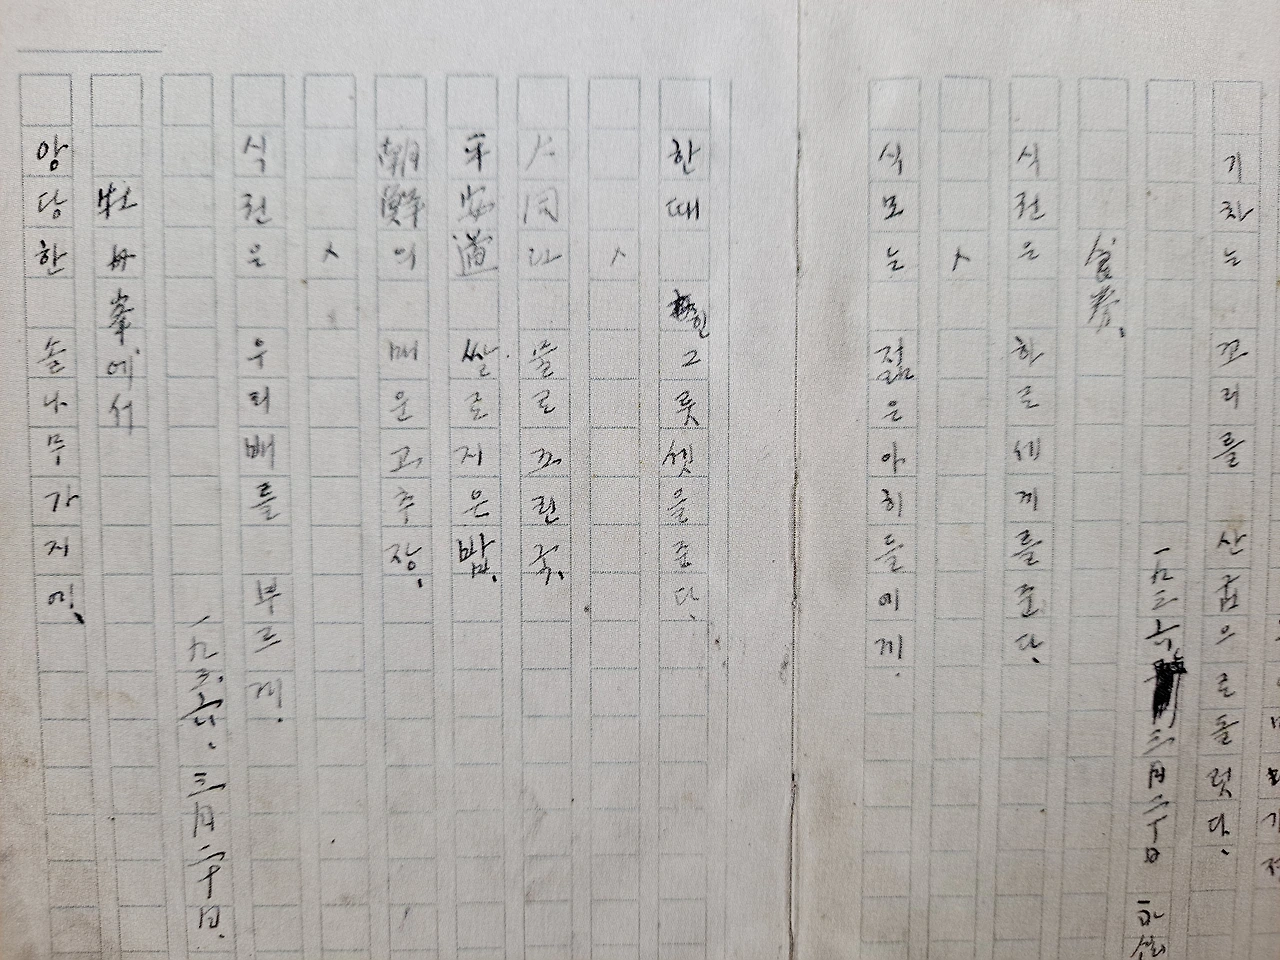 기차는 꼬리를 산굽으로 돌렷다.
一九三六 三月二十日
食券.
식권은 하로세끼를준다.
식모는 젊은아히들에게.
한때 힌그릇셋을준다.
大同江 물로끄린국.
平安道 쌀로지은밥.
朝鮮의 매운고추장.
식권은 우리배를 부르게.
一九三六. 三月二十日.
牡丹峯에서
앙당한 솔나무가지에.